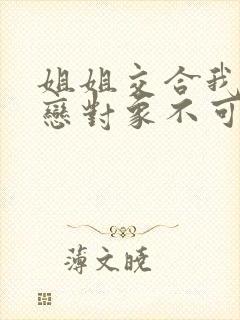 姐姐交合我
戀對象不可
薄文曉